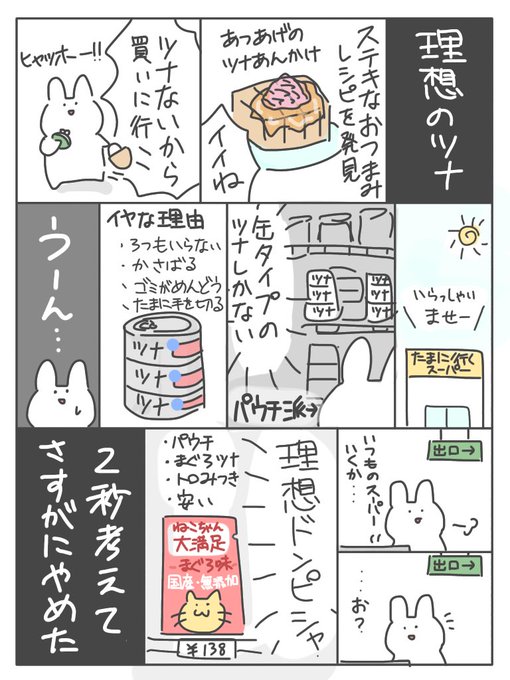 理想のツナ
ステキなおつまみ
レシピを発見
あつあげの
ツナあんかけ
イイね
ツナないから
買いに行こ
ヒャッホー!!
いらっしゃい
ませー
たまに行く
スーパー
缶タイプの
ツナしかない
ツナ
ツナ
ツナ
ツナ
ツナ
ツナ
パウチ派→
イヤな理由
・3つもいらない
・かさばる
・ゴミがめんどう
・たまに手を切る
ツナ
ツナ
ツナ
うーん…
出口→
いつものスーパー
いくか…
出口→
…お?
理想ドンピシャ
・パウチ
・まぐろツナ
・トロみつき
・安い
ねこちゃん
大満足
-まぐろ味-
国産・無添加
¥138
2秒考えて
さすがにやめた